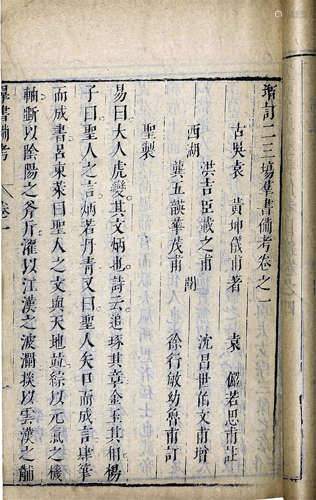 增訂二三場羣書備考卷之一
古吳袁 黃坤儀甫著 袁 儼若思甫註
洪吉臣載之甫 沈昌世文甫增
西湖 閱
龔五韺華茂甫 徐行敏幼魯甫訂
聖製
易曰大人虎變其文炳也詩云追琢其章金玉其相楊
子曰聖人之言炳若丹青又曰聖人矢口而成言肆筆
而成書呂東萊曰聖人之文與天地並綜以元氣之機
軸斷以陰陽之斧斤濯以江漢之波瀾揆以雲漢之黼
羣書備考 卷一 一